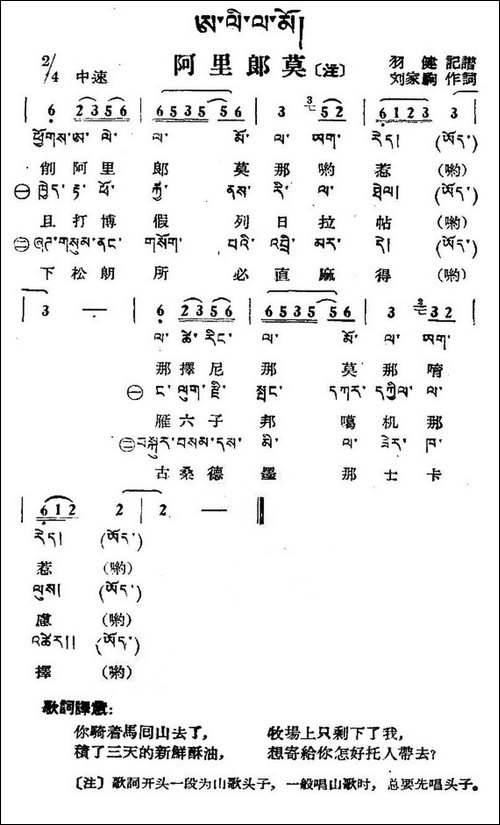 ཨ་ལི་ལ་མོ།
阿里郎莫〔注〕
2/4 中速
羽健 記譜
刘家駒 作詞
6 2356 6535 56 3 3 52 6123 3
ཕྱོགས་ཨ་ལེ་ ལ་ མོ་ ལ་ ཨག་ རེད། (ཨོད་)
創阿里 郞 莫那喲 惹 (喲)
㊀ ཁྱེད་རྟ་ཕོ་ ཀྱཱ་ ནས་ རི་ ལ་ ཐལ། (ཨོད་)
且打博 假 列日拉 帖 (喲)
㊁ ཞག་གསུམ་ནང་ གསོག་ པའི་ འབྲི་ མར་ དེ། (ཨོད་)
下松朗 所 必直麻 得 (喲)
3 — 6 2356 6535 56 3 2 32
ལ་ ཚེ་ རིང་ ལ་ མོ་ ལ་ ཨག་
那擇尼 那 莫那 唷
㊀ ང་ ལུག་རྫི་ སྤང་ དཀར་དཀྱིལ་ ལ་
雁六子 邦 噶机那
㊁ བསྐུར་བསམ་དས་ མི་ ལ་ ཟེར་ ཁ་
古桑德 墨 那士卡
612 2 2 —
རེད། (ཨོད་)
惹 (喲)
ལུས། (ཨོད་)
慮 (喲)
འཚེར།། (ཨོད་)
擇 (喲)
歌詞譯意:
你騎着馬囘山去了, 牧場上只剩下了我,
積了三天的新鮮酥油, 想寄給你怎好托人帶去?
〔注〕歌詞开头一段为山歌头子,一般唱山歌时,总要先唱头子。